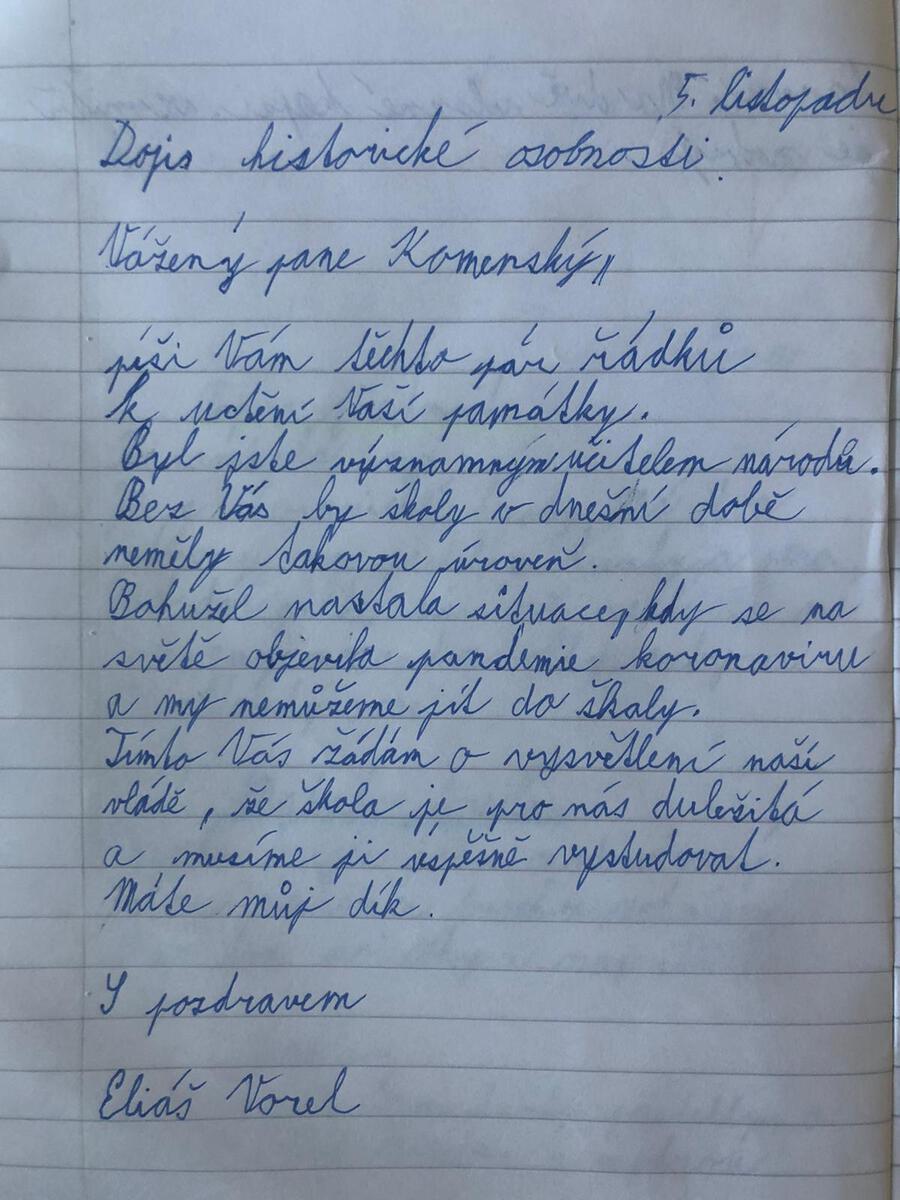 5. listopadu
Dopis historické osobnosti.
Vážený pane Komenský,
píši Vám těchto pár řádků
k uctění Vaší památky.
Byl jste významným učitelem národů.
Bez Vás by školy v dnešní době
neměly takovou úroveň.
Bohužel nastala situace, kdy se na
světě objevila pandemie koronaviru
a my nemůžeme jít do školy.
Tímto Vás žádám o vysvětlení naší
vládě, že škola je pro nás duležitá
a musíme ji úspěšně vystudovat.
Máte můj dík.
S pozdravem
Eliáš Vorel